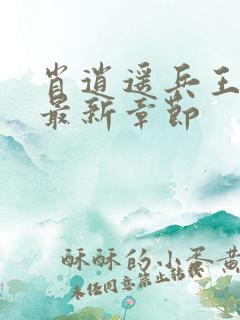 肖逍遥兵王
最新章节
酥酥的小蛋黄
未经同意禁止转载